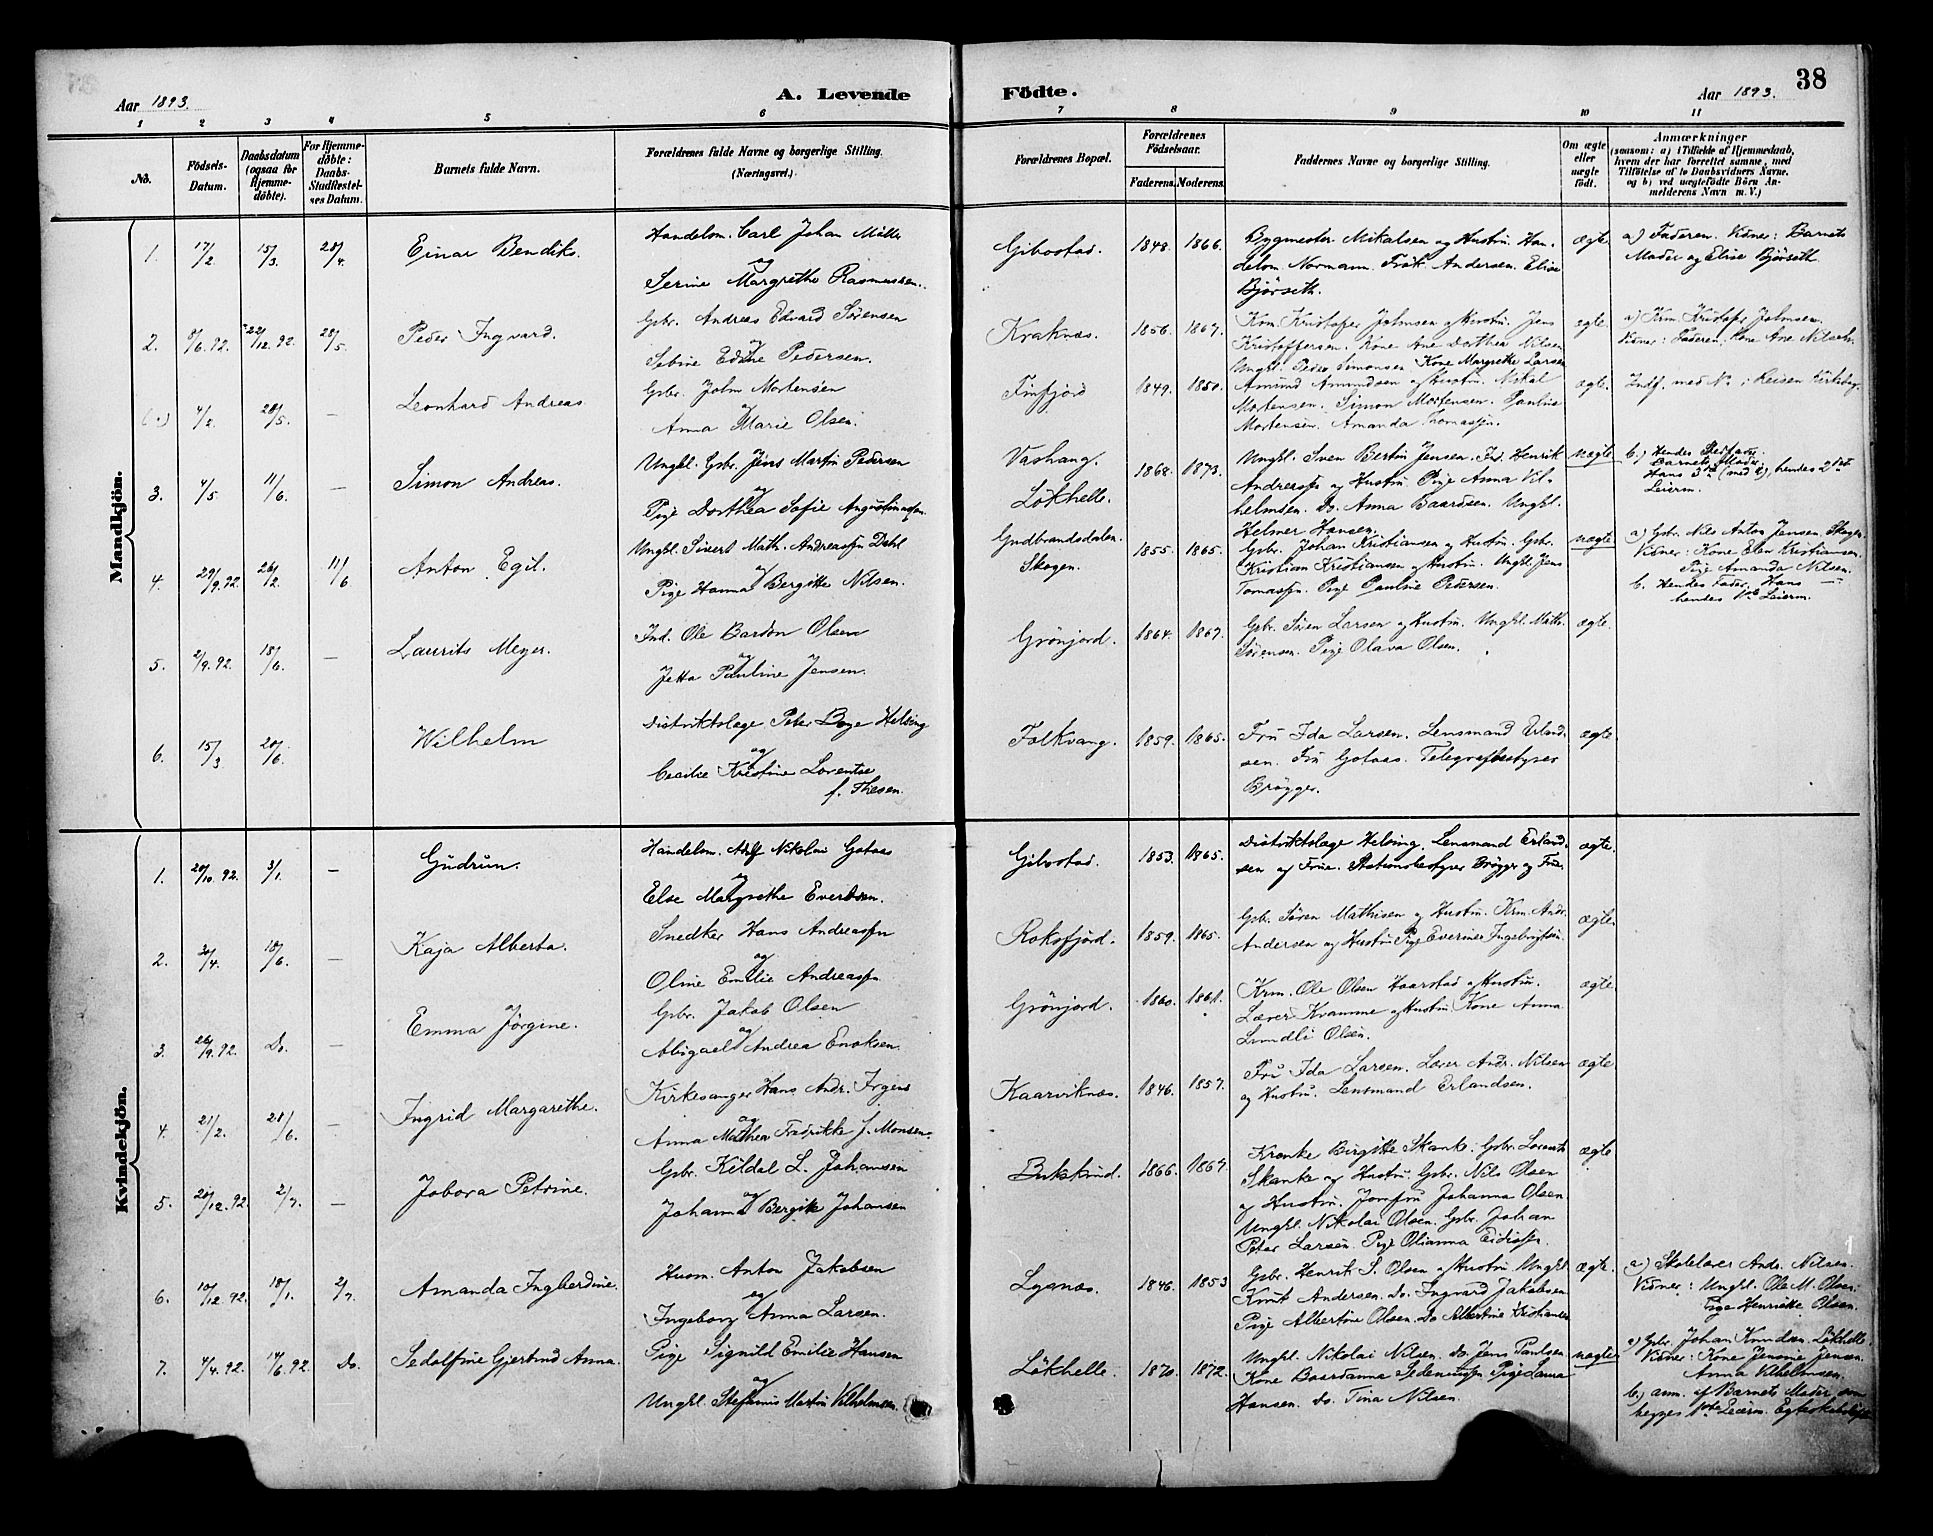 Aar 1893.
A. Levende
Födte.
Aar 1893.
38
1 2 3 4 5 6 7 8 9 10 11
No.
Födsels-Datum.
Daabsdatum (ogsaa for Hjemme-döbte).
For Hjemme-döbte: Daabs-Stadfæstel-ses Datum.
Barnets fulde Navn.
Forældrenes fulde Navne og borgerlige Stilling. (Næringsvei.)
Forældrenes Bopæl.
Forældrenes Födselsaar.
Faderens. Moderens.
Faddernes Navne og borgerlige Stilling.
Om ægte eller uægte födt.
Anmærkninger
(saasom: a) i Tilfælde af Hjemmedaab, hvem der har forrettet samme, med Tilföielse af to Daabsvidners Navne, og b) ved uægtefödte Börn Anmelderens Navn m. V.)
Mandkjön.
1. 17/2 15/3 28/4 Einar Bendiks.
Handelsm. Carl Johan Müller
og
Serine Margrethe Rasmussen.
Gibostad. 1848. 1866.
Bygmester Mikalsen og Hustru. Han-
delsm. Normann. Frøk. Andersen. Elise
Bjørseth.
ægte
a) Faderen. Vidner: Barnets
Moder og Elise Bjørseth.
2. 8/6.92. 22/12.92 28/5. Peder Ingvard.
Gbr. Andreas Edvard Sørensen
og
Sebine Edine Pedersen.
Kraknæs. 1856. 1867.
Krm. Kristofer Johnsen og Hustru. Jens
Kristoffersen. Kone Ane Dorthea Nilsen
Ungkl. Peder Simonsen Kone Margrethe Larsen
ægte.
a) Krm. Kristofer Johnsen.
Vidner: Faderen, Kone Ane Nilsen.
28/5. — Leonhard Andreas
Gbr. John Mortensen
og
Anna Marie Olsen.
Finfjord 1849. 1850.
Amund Amundsen og Hustru. Mikal
Mortensen. Simon Mortensen. Pauline
Mortensen. Amanda Thomassen.
ægte.
Indf. med No i Reisen Kirkebog.
3. 4/5 11/6. — Simon Andreas.
Ungkl. Gbr. Jens Martin Pedersen
og
Pige Dorthea Sofie Augustinussen.
Vashaug.
Løkhelle.
1868. 1873.
Ungkl. Sven Bertin Jensen. Ind. Henrik
Andreassen og Hustru Pige Anna Vil-
helmsen. Do. Anna Baardsen. Ungkl.
Helmer Hansen.
uægte
b.) Hendes Stedfader.
Barnets Moder.
hendes 2det
Leierm.
4. 29/9.92. 26/2. 11/6 Anton Egil.
Ungkl. Sivert Math. Andreassen Dahl
og
Pige Hanna Bergitte Nilsen.
Gudbrandsdalen.
Skogen.
1855. 1865.
Gbr. Johan Kristiansen og Hustru. Gbr.
Kristian Kristiansen og Hustru. Ungkl. Jens
Tomassen. Pige Pauline Pedersen.
uægte
a) Gbr. Nils Anton Jensen, Skogen.
Vidner: Kone Elen Kristiansen.
Pige Amanda Nilsen.
b. Hendes Fader. Hans —
hendes 1ste Leierm.
5. 2/9.92. 18/6. — Laurits Meyer.
Ind. Ole Bardon Olsen
og
Jetta Pauline Jensen.
Grönjord. 1864. 1867.
Gbr. Søren Larsen og Hustru. Ungkl. Math.
Sørensen. Pige Olava Olsen.
ægte.
6. 15/3 20/6. Wilhelm
Distriktslæge Peter Boye Helsing
og
Cecilie Kristine Lorentse
f. Thesen.
Folkvang. 1859. 1865.
Fru Ida Larsen. Lensmand Erland-
sen. Fru Gotaas. Telegrafbestyrer
Brøgger.
ægte
Kvindekjön.
1. 20/10.92. 3/1. — Gudrun.
Handelsm. Adolf Nikolai Gotaas
og
Else Margrethe Evertsen.
Gibostad. 1853. 1865.
Distriktslæge Helsing. Lensmand Erland-
sen og Frue. Stationsbestyrer Brøgger og Frue.
ægte.
2. 30/4. 18/6. — Kaja Alberta.
Snedker Hans Andreassen
og
Oline Emilie Andreassen
Roksfjord. 1859. 1865.
Gbr. Søren Mathisen og Hustru. Krm. Andr.
Andersen og Hustru Pige Everine Ingebrigtsen.
ægte.
3. 26/9.92. Do. — Emma Jørgine.
Gbr. Jakob Olsen
og
Abigael Andrea Enoksen.
Grönjord. 1860. 1861.
Krm. Ole Olsen Haarstad og Hustru.
Lærer Kvamme og Hustru Kone Anna
Lundli Olsen.
ægte.
4. 21/2. 28/6. — Ingrid Margarethe.
Kirkesanger Hans Andr. Irgens
og
Anna Mathea Fredrikke f. Monsen.
Kaarviknæs. 1846. 1857.
Fru Ida Larsen. Lærer Andr. Nilsen
og Hustru. Lensmand Erlandsen.
ægte
5. 20/12.92. 2/7. — Jobora Petrine.
Gbr. Kildal L. Johansen
og
Johanna Bergitte Johansen
Bukskind. 1866. 1867.
Birgitte Skanke. Gbr. Lorents
Skanke og Hustru. Gbr. Nils Olsen
og Hustru. Jomfru Johanna Olsen.
Ungkl. Nikolai Olsen. Gbr. Johan
Peter Larsen. Pige Olianna Eidissen.
ægte
6. 10/12.92. 18/1. 2/7. Amanda Ingberdine.
Husm. Anton Jakobsen
og
Ingeborg Anna Larsen.
Lysnæs. 1846. 1853
Gbr. Henrik S. Olsen og Hustru Ungkl.
Knut Andersen. Do. Ingvard Jakobsen
Pige Albertine Olsen. Do Albertine Kristiansen
ægte.
a) Skolelærer Andr. Nilsen.
Vidner: Ungkl. Ole M. Olsen.
Pige Henriette Olsen.
7. 4/4.92. 14/6.92. Do. Sedolfine Gjertrud Anna.
Pige Signild Emilie Hansen
og
Ungkl. Stefanus Martin Vilhelmsen.
Løkhelle. 1870. 1872.
Ungkl. Nikolai Nilsen. Do. Jens Paulsen
Kone Baardanna Sedeniussen Pige Lovna
Hansen. Do. Tina Nilsen.
uægte
a) Gbr. Johan Knudsen. Løkhelle
Vidner: Kone Jensine Jensen.
Anna Vilhelmsen.
b.) anm. af Barnets Moder som
begges 1ste Leierm.